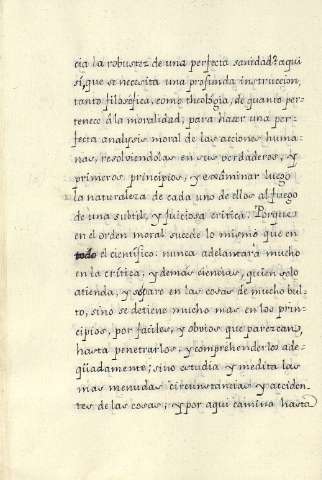 cia la robustez de una perfecta sanidad? aqui
sí, que se necesita una profunda instruccion,
tanto filosófica, como theológia, de quanto per-
tenece á la moralidad, para hazer una per-
fecta analysis moral de las acciones huma-
nas, resolviendolas en sus verdaderos, y
primeros principios, y exáminar luego
la naturaleza de cada uno de ellos al fuego
de una subtil, y juiciosa critica. Porque
en el orden moral sucede lo mismo que en
todo el cientifico: nunca adelantará mucho
en la critica, y demás ciencias, quien solo
atienda, y repare en las cosas de mucho bul-
to, sino se detiene mucho mas en los prin-
cipios, por faciles, y obvios que parezcan,
hasta penetrarlos, y comprehenderlos ade-
qüadamente; sino estudia y medita las
mas menudas circunstancias y acciden-
tes de las cosas; y por aqui camina hasta